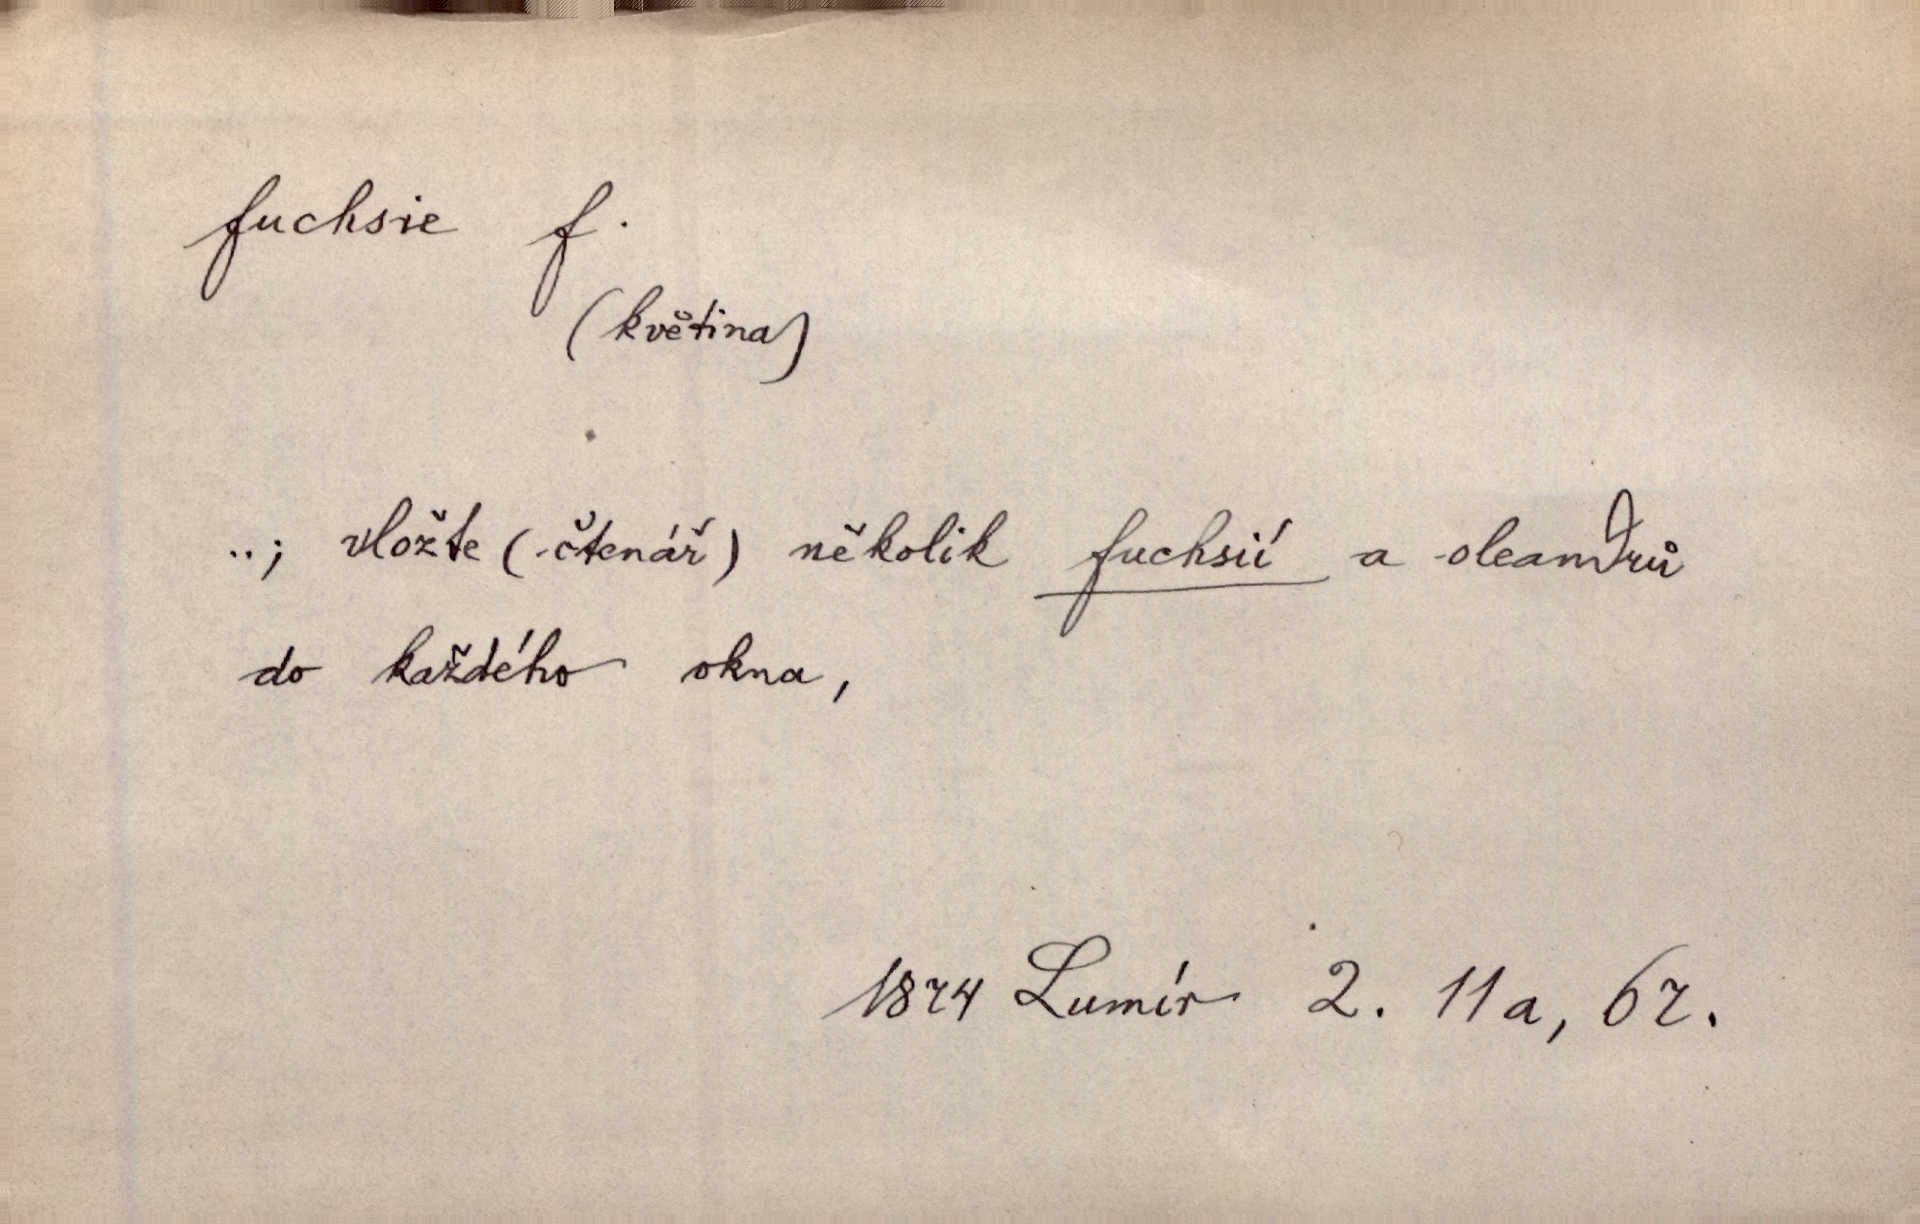 fuchsie f.
(květina)
..; vložte (čtenář) několik fuchsií a oleandrů
do každého okna,
1874 Lumír 2. 11a, 67.